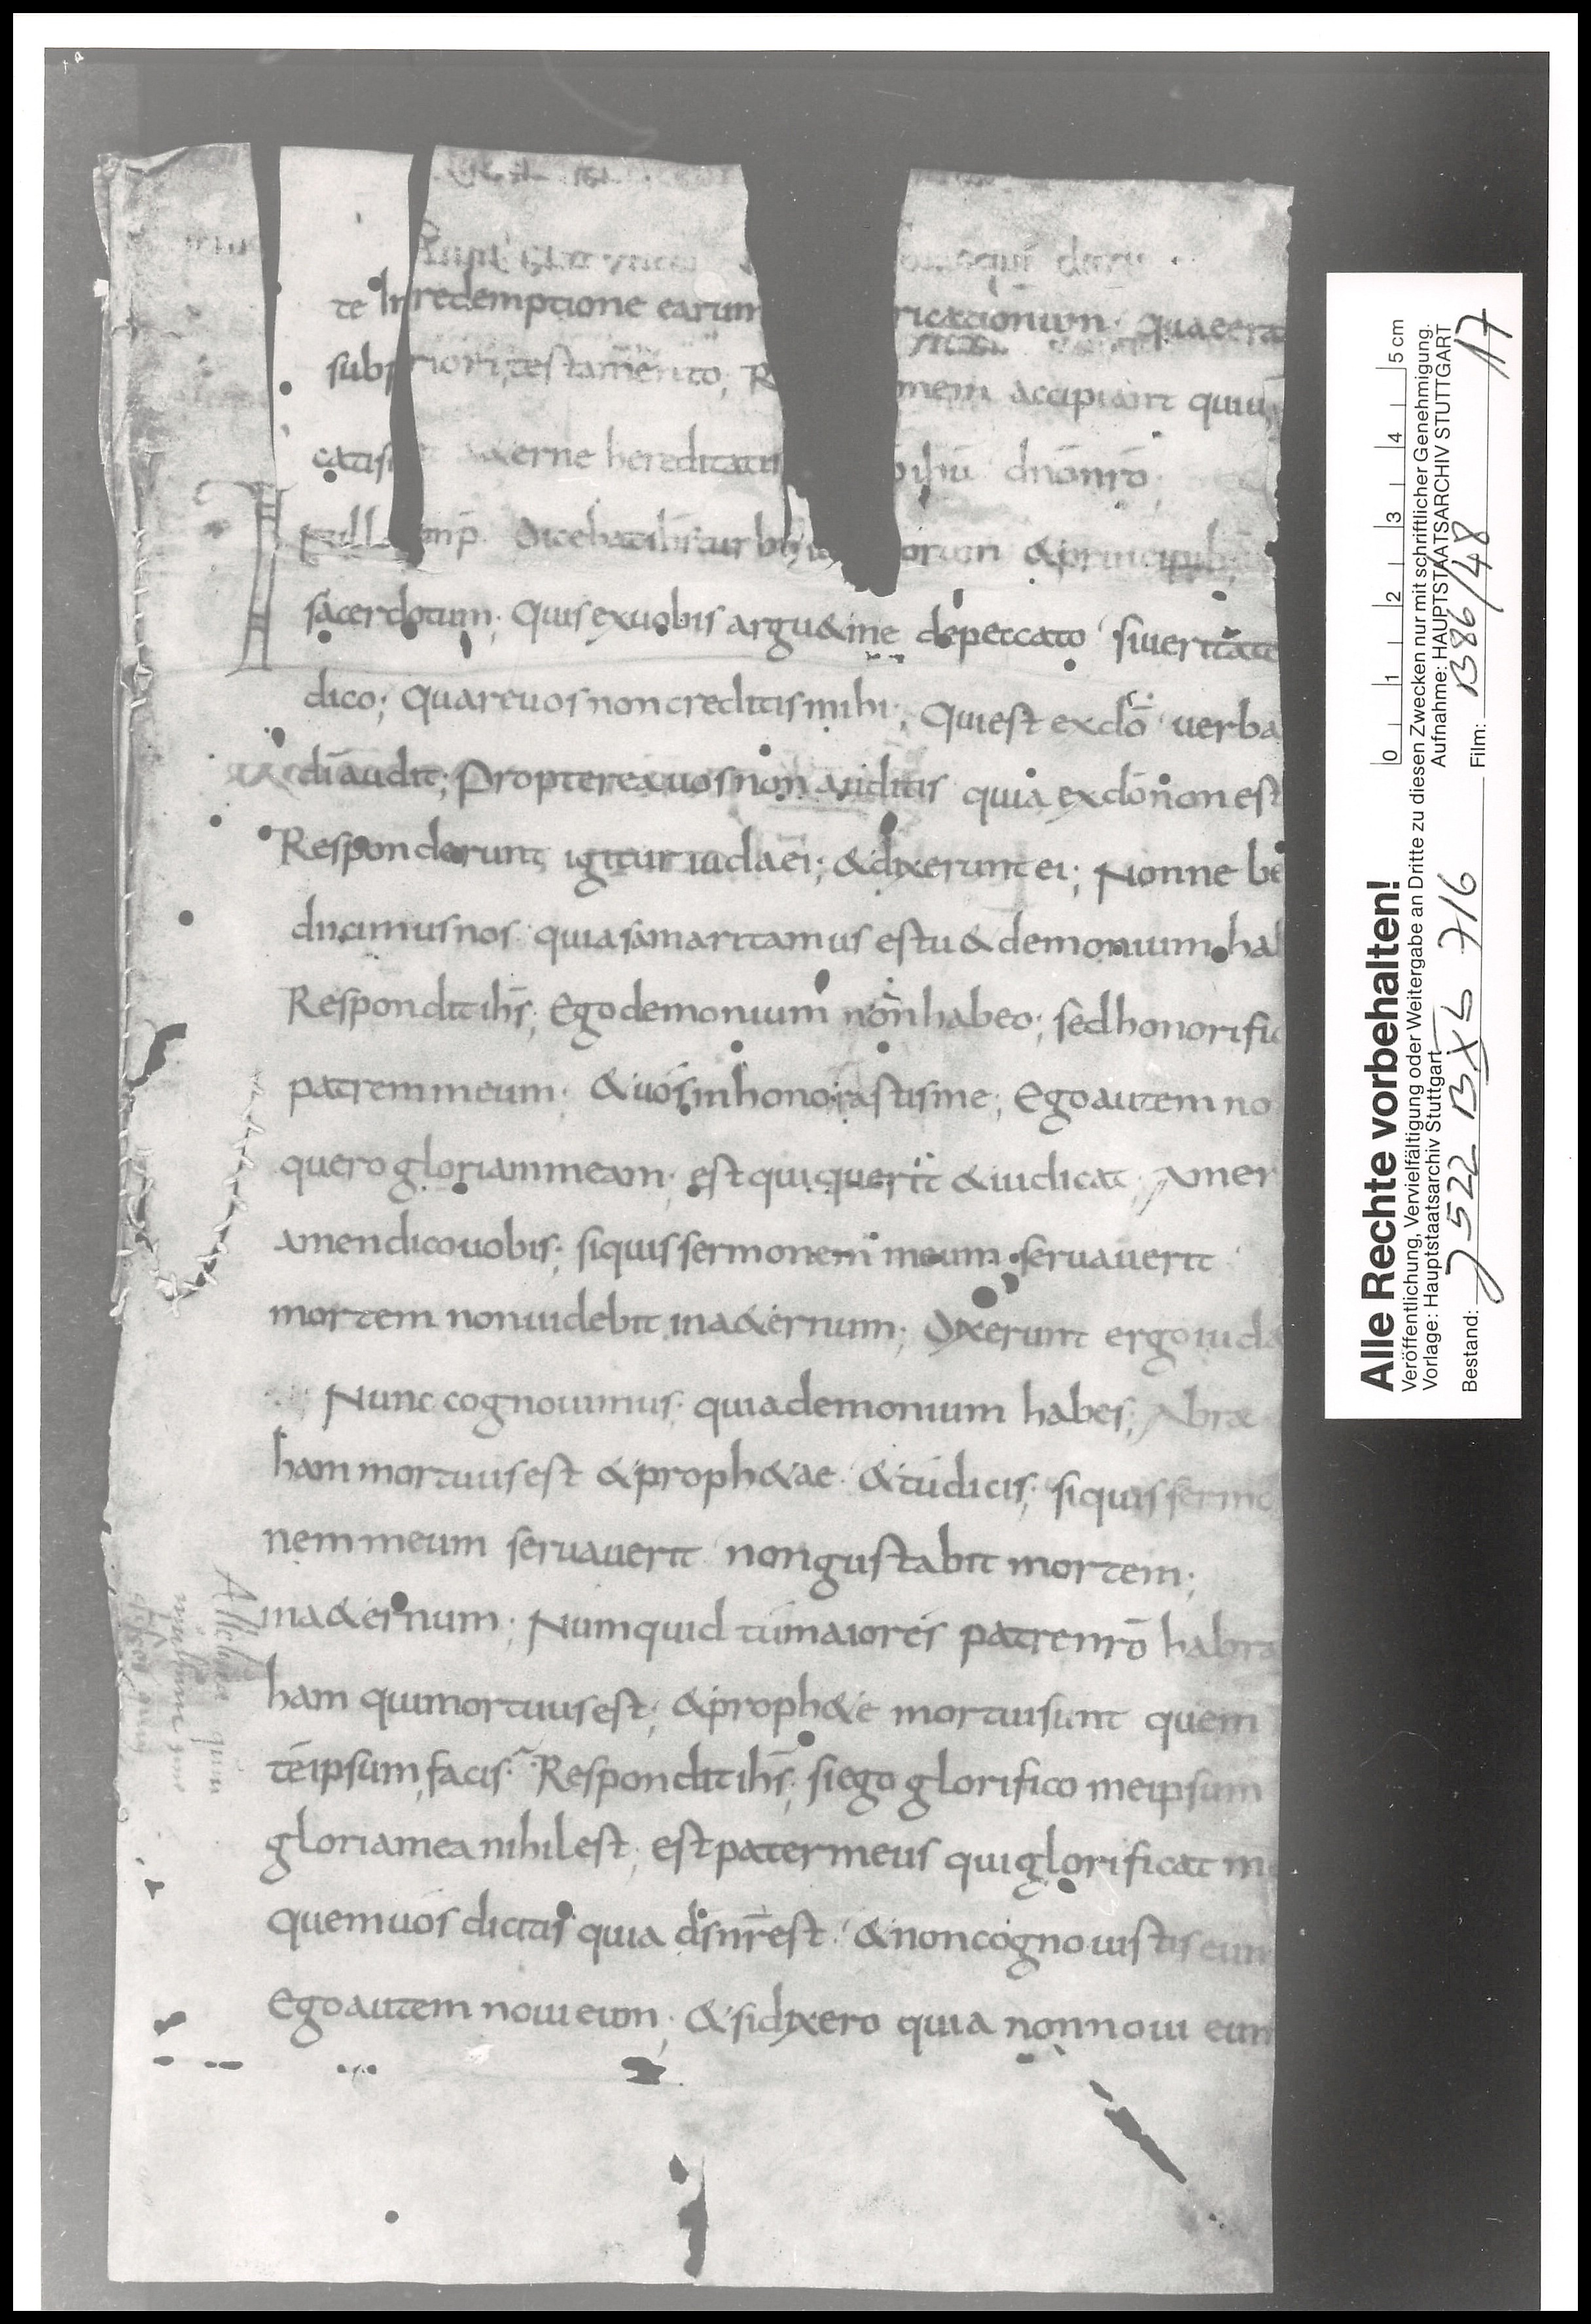 te In redemptione earum ricationum. Quae era
subpriori testamento, R mem accipiant quiu
catis &erne hereditatis ihū dnōnrō
In illo temp. Dicebat ihs turbis iu orum & principib;
sacerdotum; Quis exuobis argu&me depeccato. siueritate
dico; Quareuos noncreditis mihi; Quiest exdō uerba
dī audit; Propterea uos non auditis quia exdō nonest
Responderunt igitur iudaei; &dixerunt ei; Nonne be
dicimus nos quia samaritamus estu & demonium hab
Respondit ihs; Ego demonium non habeo; sed honorific
patrem meum; &uos inhonorastis me; Ego autem no
quero gloriam meam; est qui querit & iudicat; Amen
amen dico uobis; siquis sermonem meum seruauerit
mortem non uidebit ina&ernum; Dixerunt ergo iuda
Nunc cognouimus; quia demonium habes; Abra
ham mortuus est &proph&ae &tu dicis; siquis sermo
nem meum seruauerit non gustabit mortem;
ina&ernum; Numquid tu maiores patrenrō habra
ham qui mortuus est; &proph&e mortui sunt quem
teipsum facis; Respondit ihs; siego glorifico meipsum
gloria mea nihil est; est pater meus qui glorificat me
quem uos dicitis quia ds nr est. &non cognouistis eum
Ego autem noui eum; &si dixero quia non noui eum
Alleluia
Alle Rechte vorbehalten!
Veröffentlichung, Vervielfältigung oder Weitergabe an Dritte zu diesen Zwecken nur mit schriftlicher Genehmigung.
Vorlage: Hauptstaatsarchiv Stuttgart Aufnahme: HAUPTSTAATSARCHIV STUTTGART
Bestand: J 522 B X b 716 Film: B86/48 17
0 1 2 3 4 5 cm